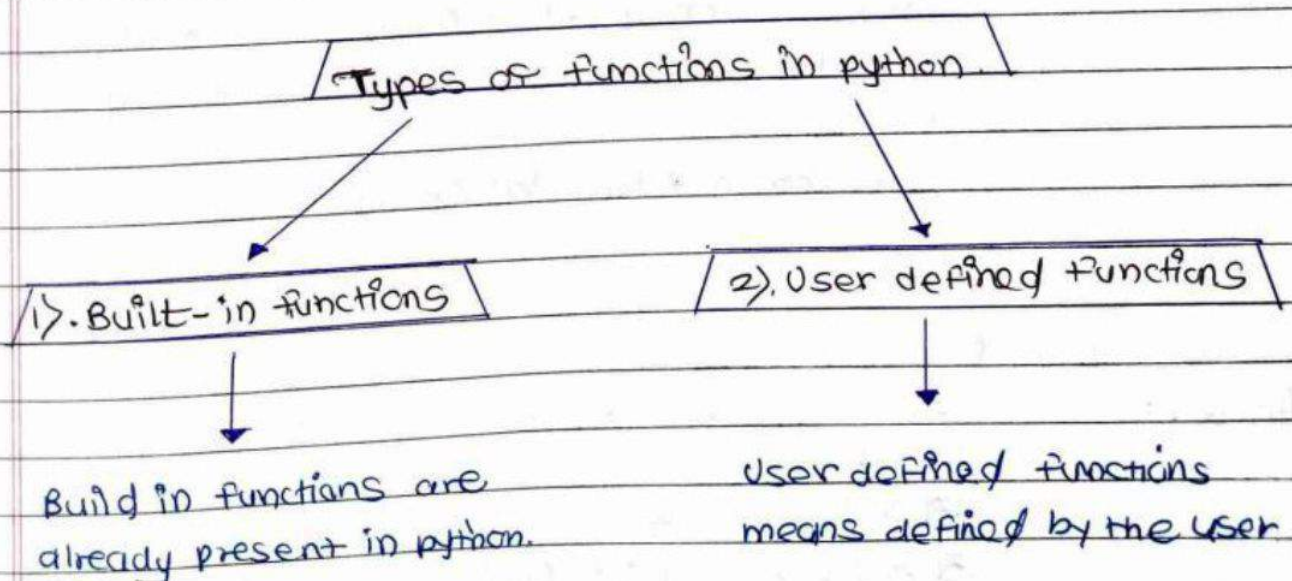 Types of functions in python.
1). Built-in functions
2). User defined functions
Build in functions are
already present in python.
User defined functions
means defined by the user